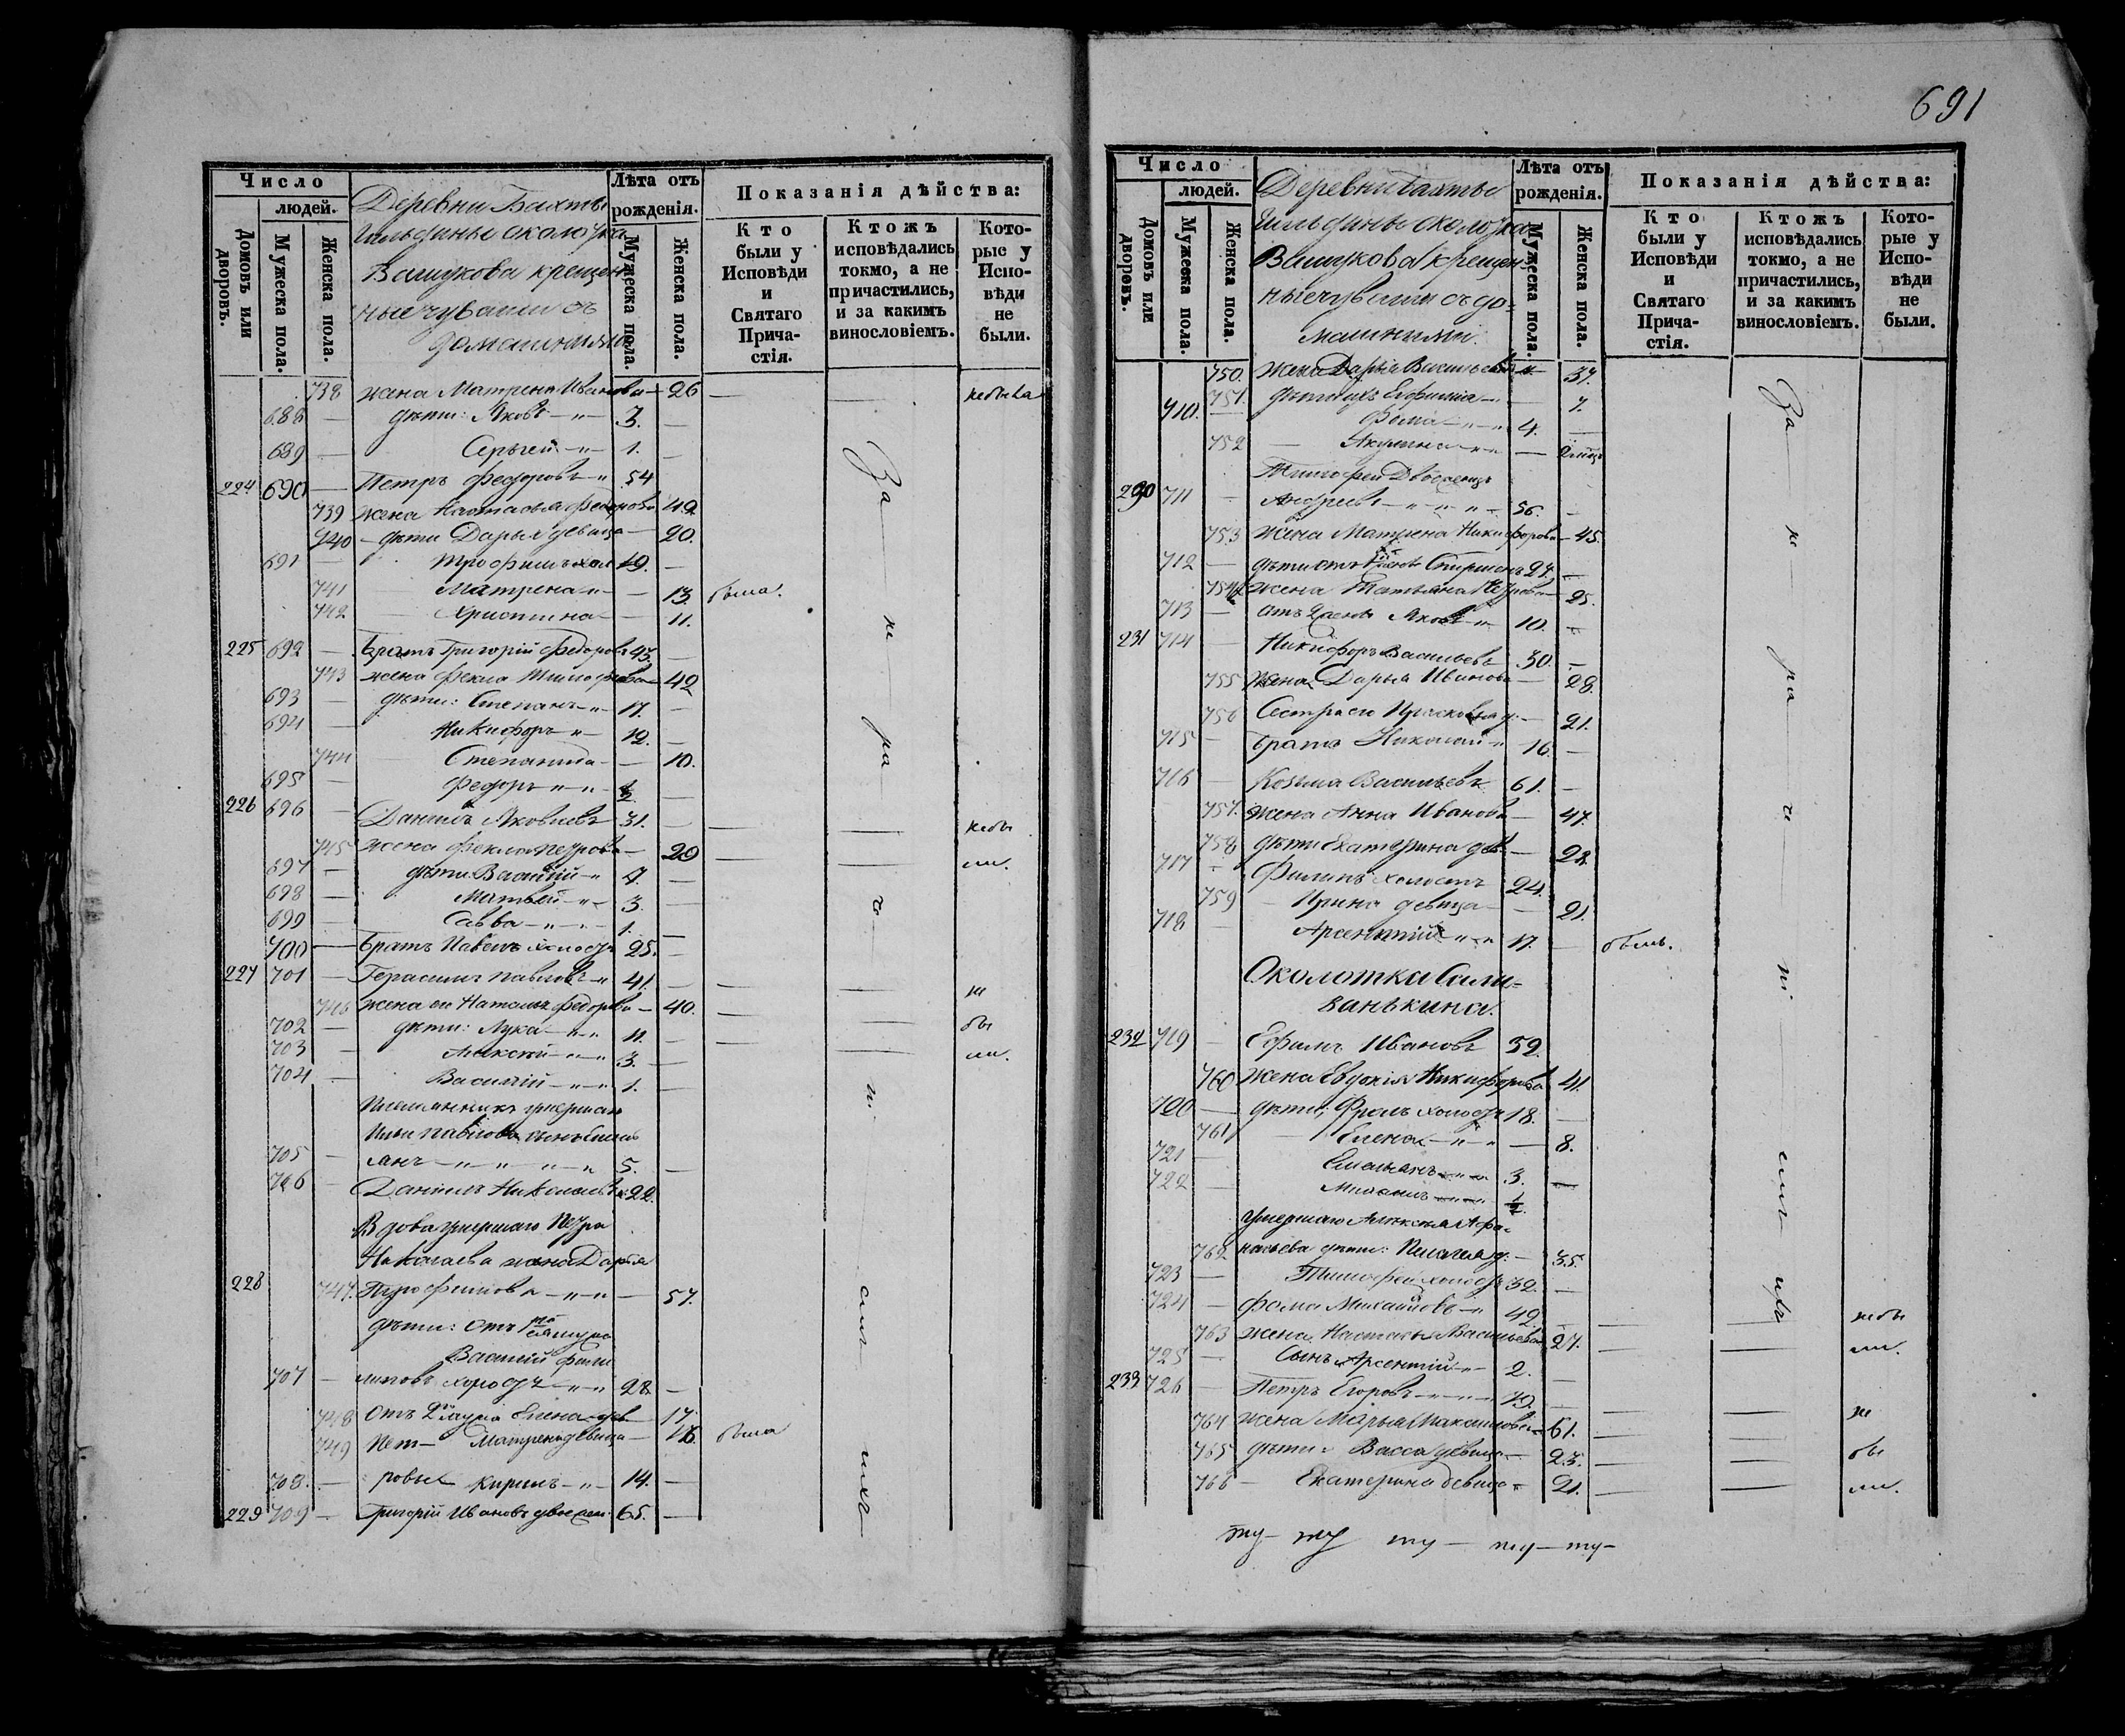 691
Число
людей.
Домовъ или дворовъ.
Мужеска пола.
Женска пола.
Деревни Бахты
гильдины околотка
Вашукова крещен
ные чуваши съ
домашними
Лѣта отъ
рожденія.
Мужеска пола.
Женска пола.
Показанія дѣйства:
Кто
были у
Исповѣди
и
Святаго
Прича-
стія.
Ктожъ
исповѣдались
токмо, а не
причастились,
и за какимъ
винословіемъ.
Кото-
рые у
Испо-
вѣди
не
были.
738 жена Матрена Иванова 26 не была
688 дѣти: Яковъ 3.
689 Сергѣй 1.
224 690 Петръ Федоровъ 54
739 жена Настасья Федорова 49
740 дѣти Дарья девица 20.
691 Трофимъ хол 19.
741 Матрена 13. была.
742 Христина 11.
225 692 Братъ Григорій Федоровъ 43.
743 жена Фекла Тимофѣева 42
693 дѣти: Степанъ 17.
694 Никифоръ 12.
744 Степанида 10.
695 Федоръ
226 696 Данилъ Яковлевъ 31. не бы
745 жена Фекла Петрова 29 ли.
697 дѣти Василій 7.
698 Матвѣй 3.
699 Савва 1.
700 Братъ Павелъ холостъ 25.
227 701 Герасимъ Павловъ 41. не
746 жена ею Наталья Федорова 40. бы
702 дѣти: Лука 11.
703 Алексѣй 3. ли.
704 Василій 1.
Племянникъ умершаго
Ильи Павлова сынъ Емель
705 янъ 5.
706 Данилъ Николаевъ 22.
Вдова умершаго Петра
Николаева жена Дарья
228 747. Трофимова 57.
дѣти: отъ 1го мужа
Василій Фили
707 липовъ холостъ 28
748 Отъ 2го мужа Елена дев 17.
749 Пет- Матрена девица 16. была
708. ровы Кирилъ 14.
229 709 Григорій Ивановъ двоежен. 65.
За не ра че ні емъ ихъ
Число
людей.
Домовъ или дворовъ.
Мужеска пола.
Женска пола.
Деревни Бахты
гильдины околотка
Вашукова крещен-
ные чуваши съ до-
машними.
Лѣта отъ
рожденія.
Мужеска пола.
Женска пола.
Показанія дѣйства:
Кто
были у
Исповѣди
и
Святаго
Прича-
стія.
Ктожъ
исповѣдались
токмо, а не
причастились,
и за какимъ
винословіемъ.
Кото-
рые у
Испо-
вѣди
не
были.
750. жена Дарья Васильева 37.
751. дѣти ихъ Евфимія 7.
710. Фома 4.
752 Акулина
Тимофей Двоеженецъ
230 711 Андреевъ 56.
753 жена Матрена Никифорова 45.
712 дѣти отъ Спиридонъ 27.
754 жена Татьяна Петрова 25.
713 отъ 2 жены Яковъ 10.
231 714 Никифоръ Васильевъ 30.
755 жена Дарья Иванова 28.
756 Сестра ею Прасковья д. 21.
715 Братъ Николай 16.
716 Козьма Васильевъ 61.
757. жена Анна Иванова 47.
758 дѣти Екатерина дев. 28
717 Филипъ холостъ 24.
759 Ирина девица 21.
718 Арсентій 17. былъ.
Околотка Сали-
ванькина.
232 719 Ефимъ Ивановъ 52.
760 жена Евдокія Никифорова 41.
720 дѣти; Фролъ холостъ 18.
761 Елена 8.
721 Емельянъ 3.
722 Михаилъ
умершаго Алексея Афа-
762 насьева дѣти: Пелагея д. 35.
723 Тимофей холостъ 32.
724 Фома Михайловъ 42. не бы
763 жена Настасья Васильева 27. ли.
725 Сынъ Арсентій 2.
233 726 Петръ Егоровъ 70. не
764 жена Марья Максимова 61.
765 дѣти: Васса девица 23. бы
766 Екатерина девица 21. ли.
За не ра че ні емъ ихъ